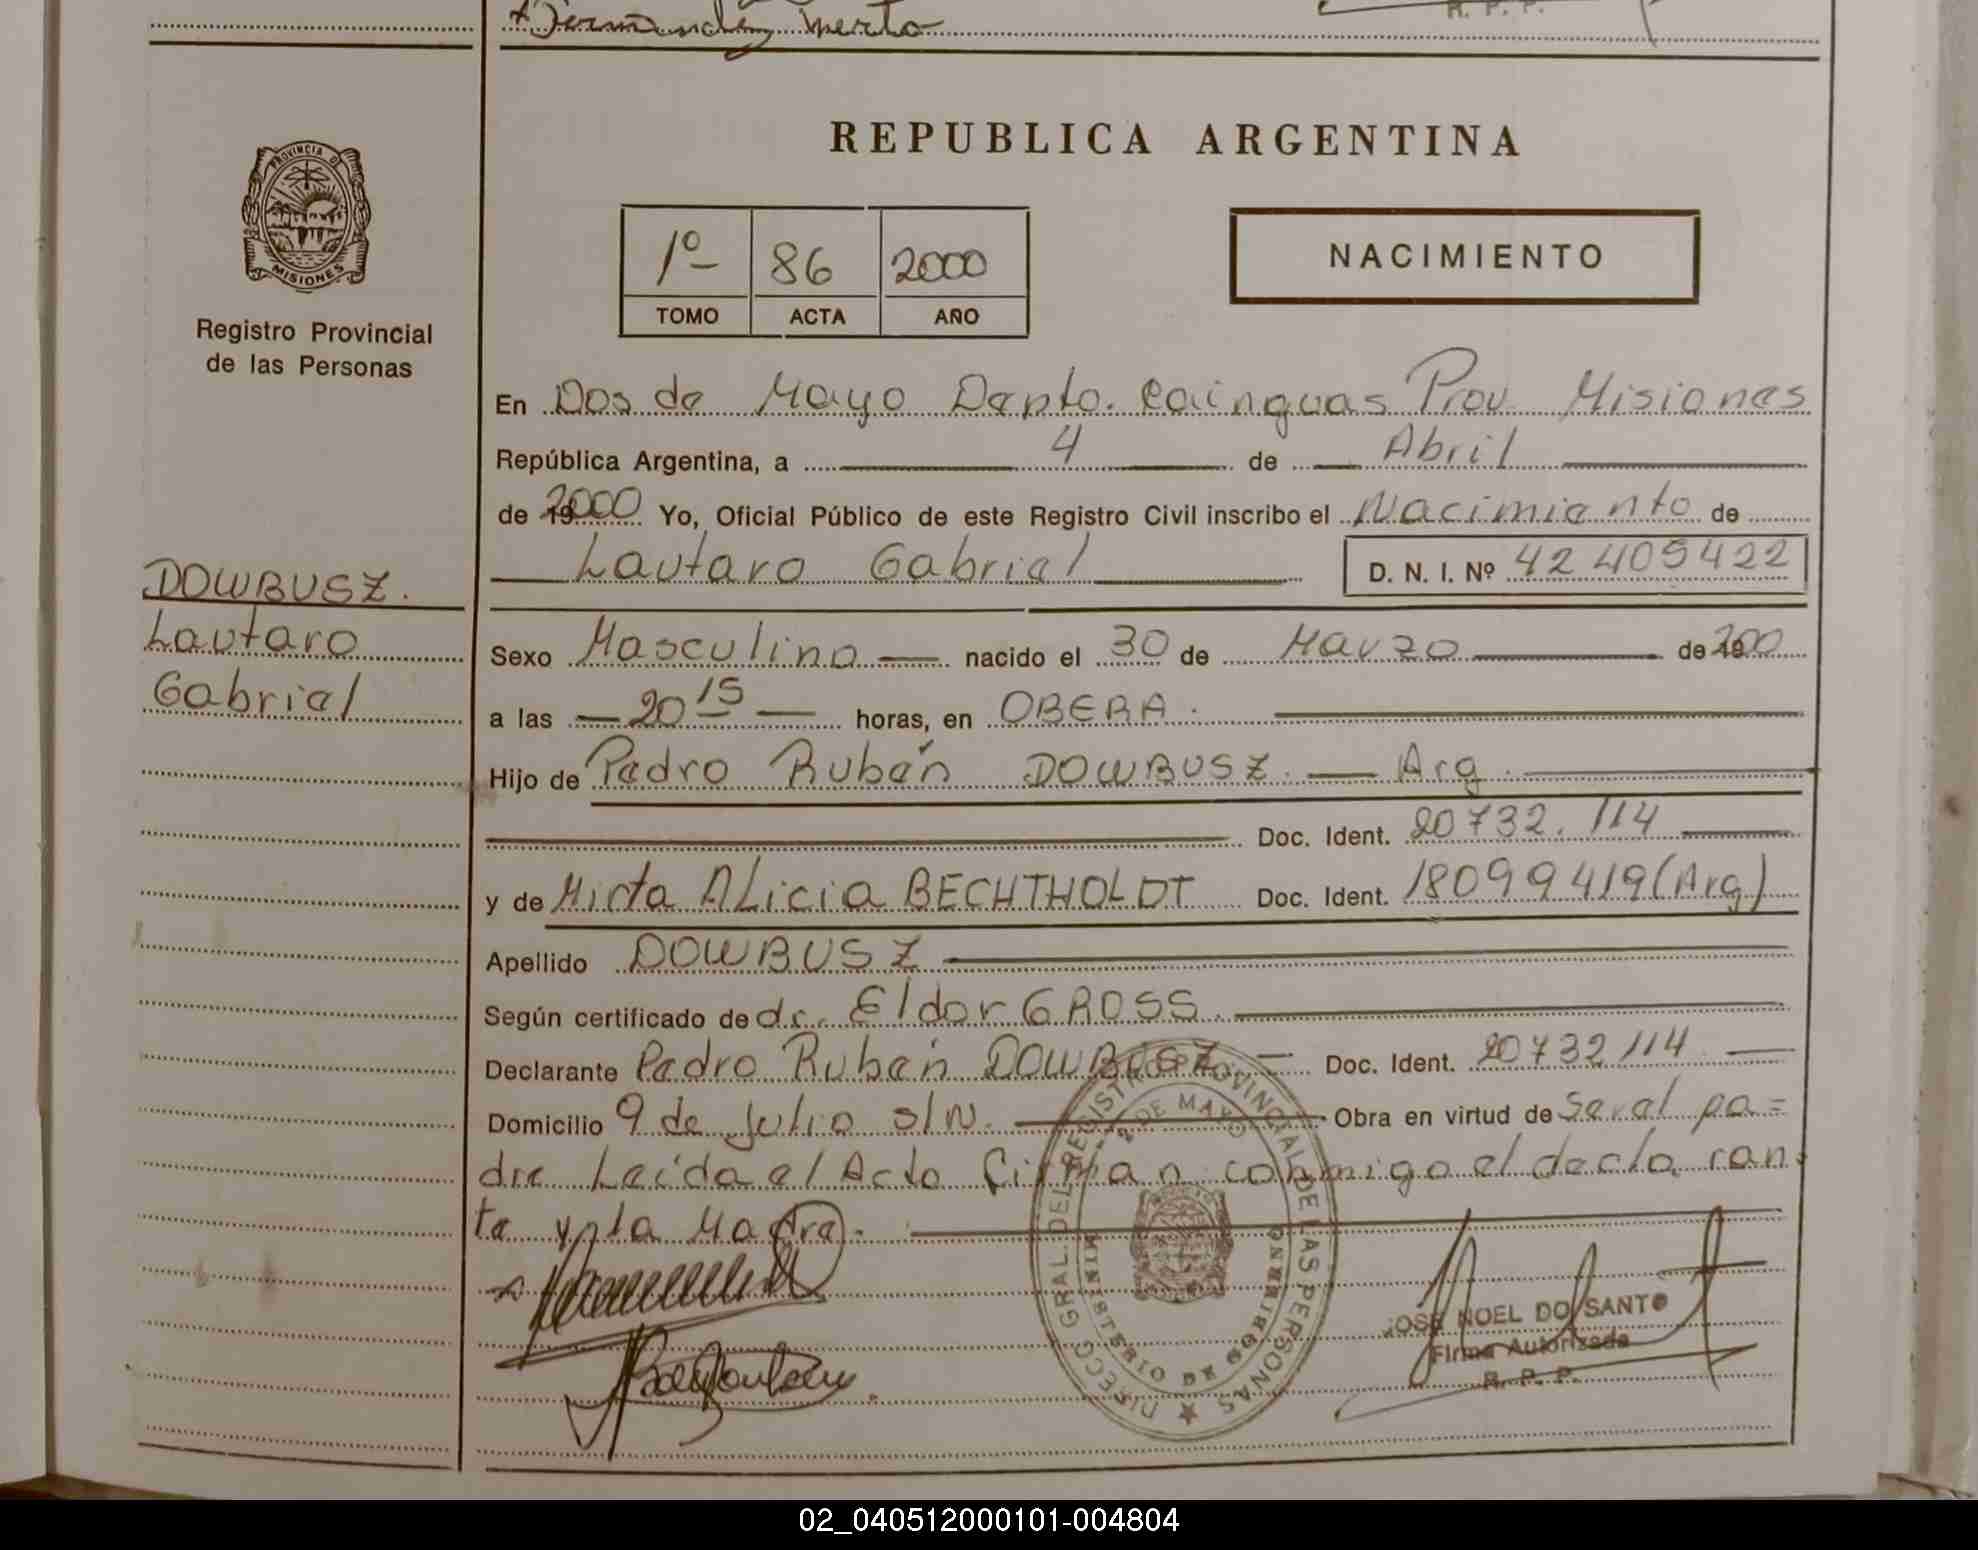 Fernandez Merto
R. P. P.
REPUBLICA ARGENTINA
PROVINCIA DE
MISIONES
Registro Provincial
de las Personas
1º 86 2000
TOMO ACTA AÑO
NACIMIENTO
En Dos de Mayo Depto. Cainguas Prov. Misiones
República Argentina, a 4 de Abril
de 192000 Yo, Oficial Público de este Registro Civil inscribo el Nacimiento de
Lautaro Gabriel D. N. I. Nº 42 405422
DOWBUSZ.
Lautaro
Gabriel
Sexo Masculino nacido el 30 de Marzo de 19 200
a las 20 15 horas, en OBERA.
Hijo de Pedro Rubén DOWBUSZ. Arg.
Doc. Ident. 20732.114
y de Mirta ALicia BECHTHOLDT Doc. Ident. 18099419 (Arg)
Apellido DOWBUSZ
Según certificado de dr. Eldor GROSS.
Declarante Pedro Rubén DOWBUSZ Doc. Ident. 20732114
Domicilio 9 de Julio s/N. Obra en virtud de Seral pa=
dre Leída el Acta firman conmigo el declaran
te y la Madre.
DIRECC GRAL. DEL REGISTRO PROVINCIAL DE LAS PERSONAS
2 DE MAYO
MINISTERIO DE GOBIERNO
JOSE NOEL DO SANTO
Firma Autorizada
R. P. P.
02_040512000101-004804